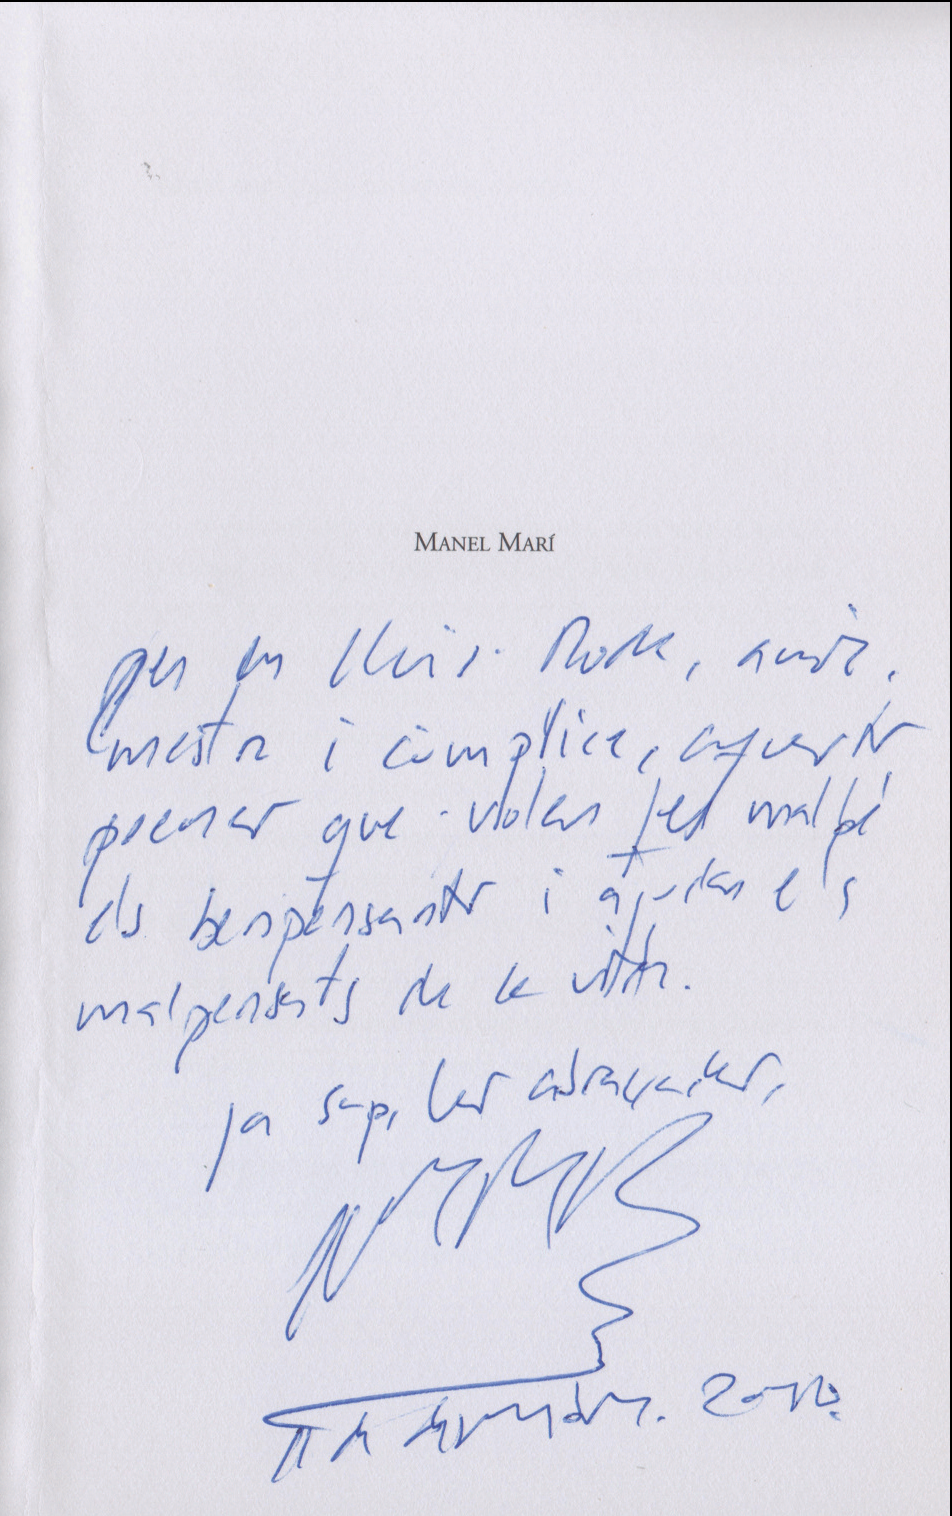 MANEL MARÍ
per en Lluís Roda, amic,
mestre i còmplice, aquests
poemes que volen fer malbé
els benpensants i ajudar els
malpensats de la vida.
ja saps, les abraçades,
de 2010.